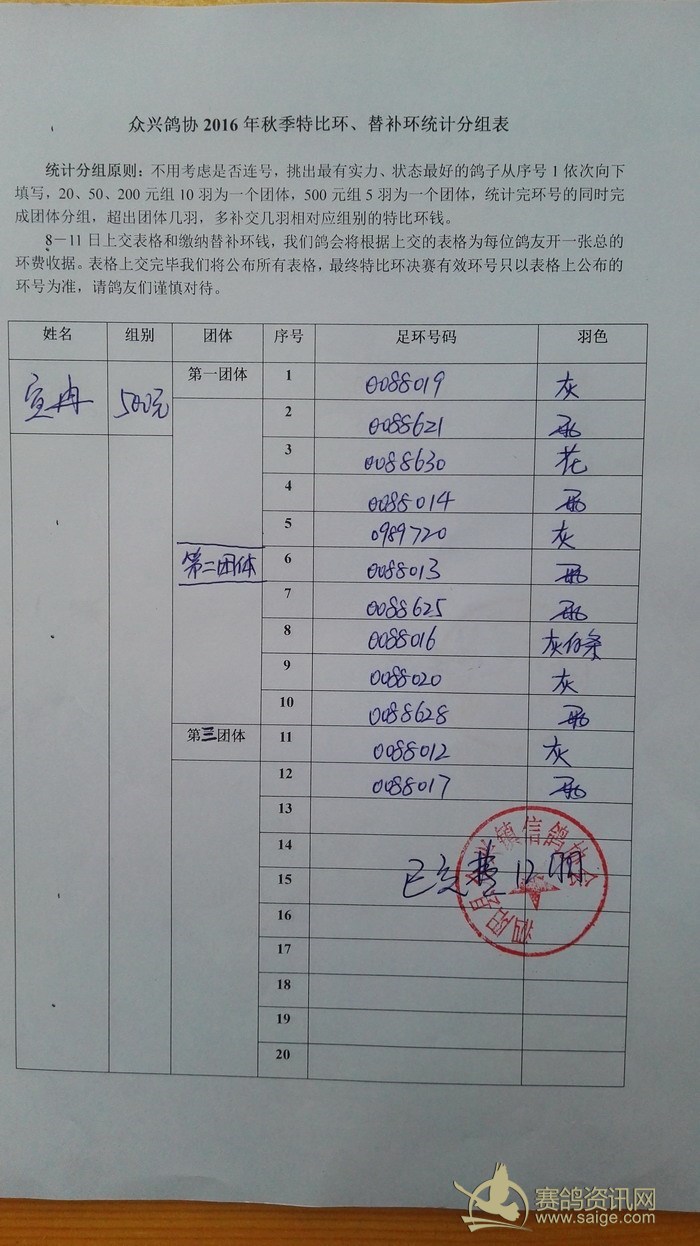 众兴鸽协 2016 年秋季特比环、替补环统计分组表
统计分组原则：不用考虑是否连号，挑出最有实力、状态最好的鸽子从序号 1 依次向下
填写，20、50、200 元组 10 羽为一个团体，500 元组 5 羽为一个团体，统计完环号的同时完
成团体分组，超出团体几羽，多补交几羽相对应组别的特比环钱。
8－11 日上交表格和缴纳替补环钱，我们鸽会将根据上交的表格为每位鸽友开一张总的
环费收据。表格上交完毕我们将公布所有表格，最终特比环决赛有效环号只以表格上公布的
环号为准，请鸽友们谨慎对待。
姓名 组别 团体 序号 足环号码 羽色
宣冉 500元 第一团体 1 0088019 灰
2 0088621
3 0088630 花
4 0088014
5 0989720 灰
第二团体 6 0088013
7 0088625
8 0088016 灰白条
9 0088020 灰
10 0088628
第三团体 11 0088012 灰
12 0088017
13
14
15 已完整12羽
16
17
18
19
20
泗阳县众兴镇信鸽协会
赛鸽资讯网
www.saige.com